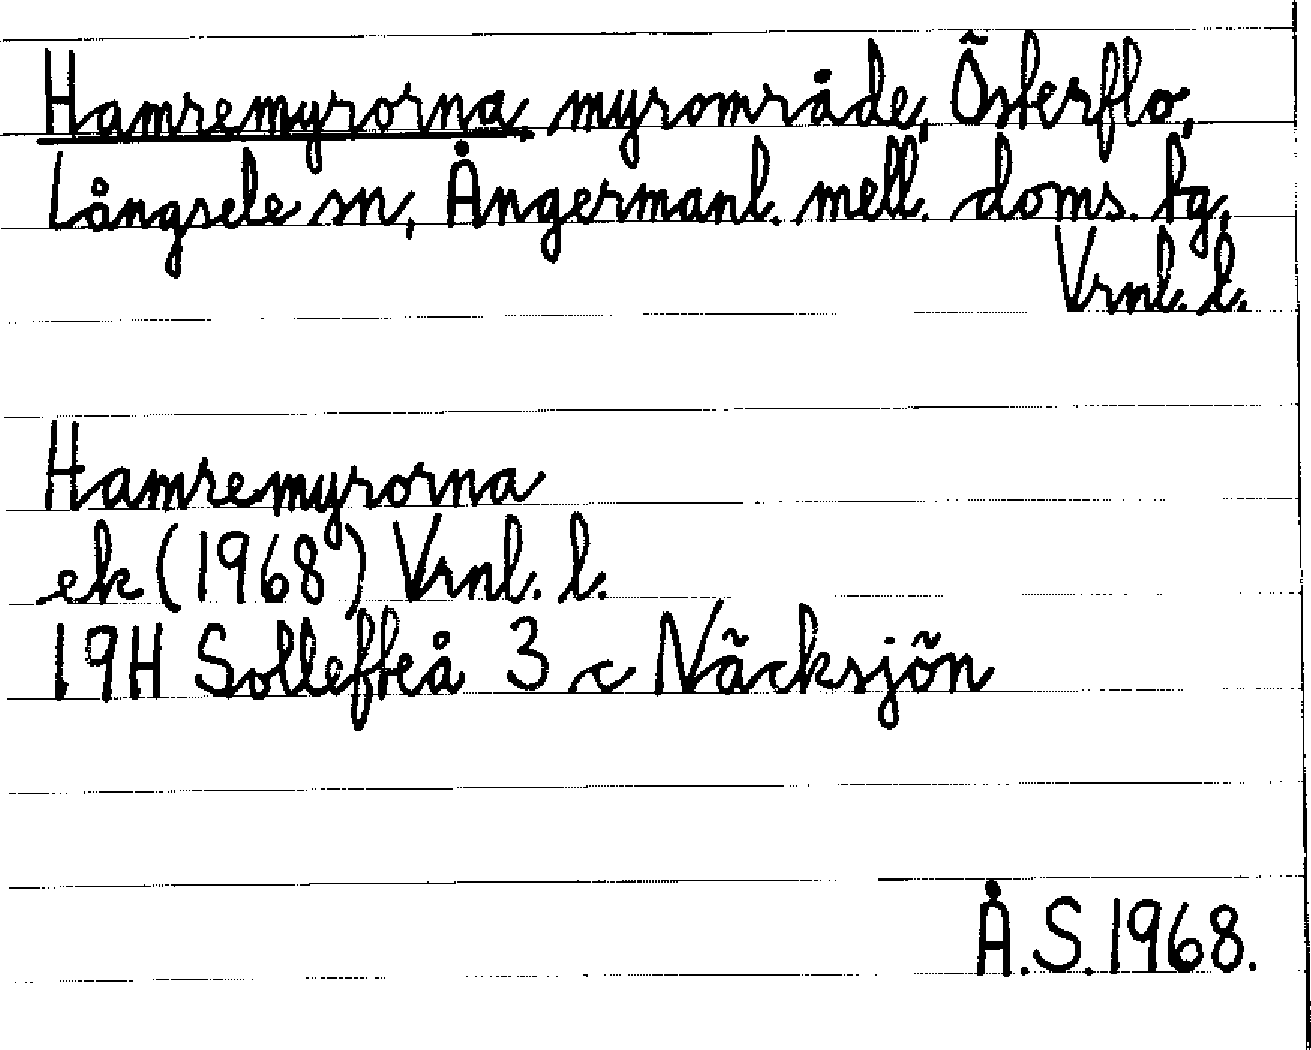 Hamremyrorna, myrområde, Österflo,
Långsele sn, Ångermanl. mell. doms. tg,
Vrnl. l.
Hamremyrorna
ek (1968) Vrnl. l.
19H Sollefteå 3 c Näcksjön
Å.S. 1968.